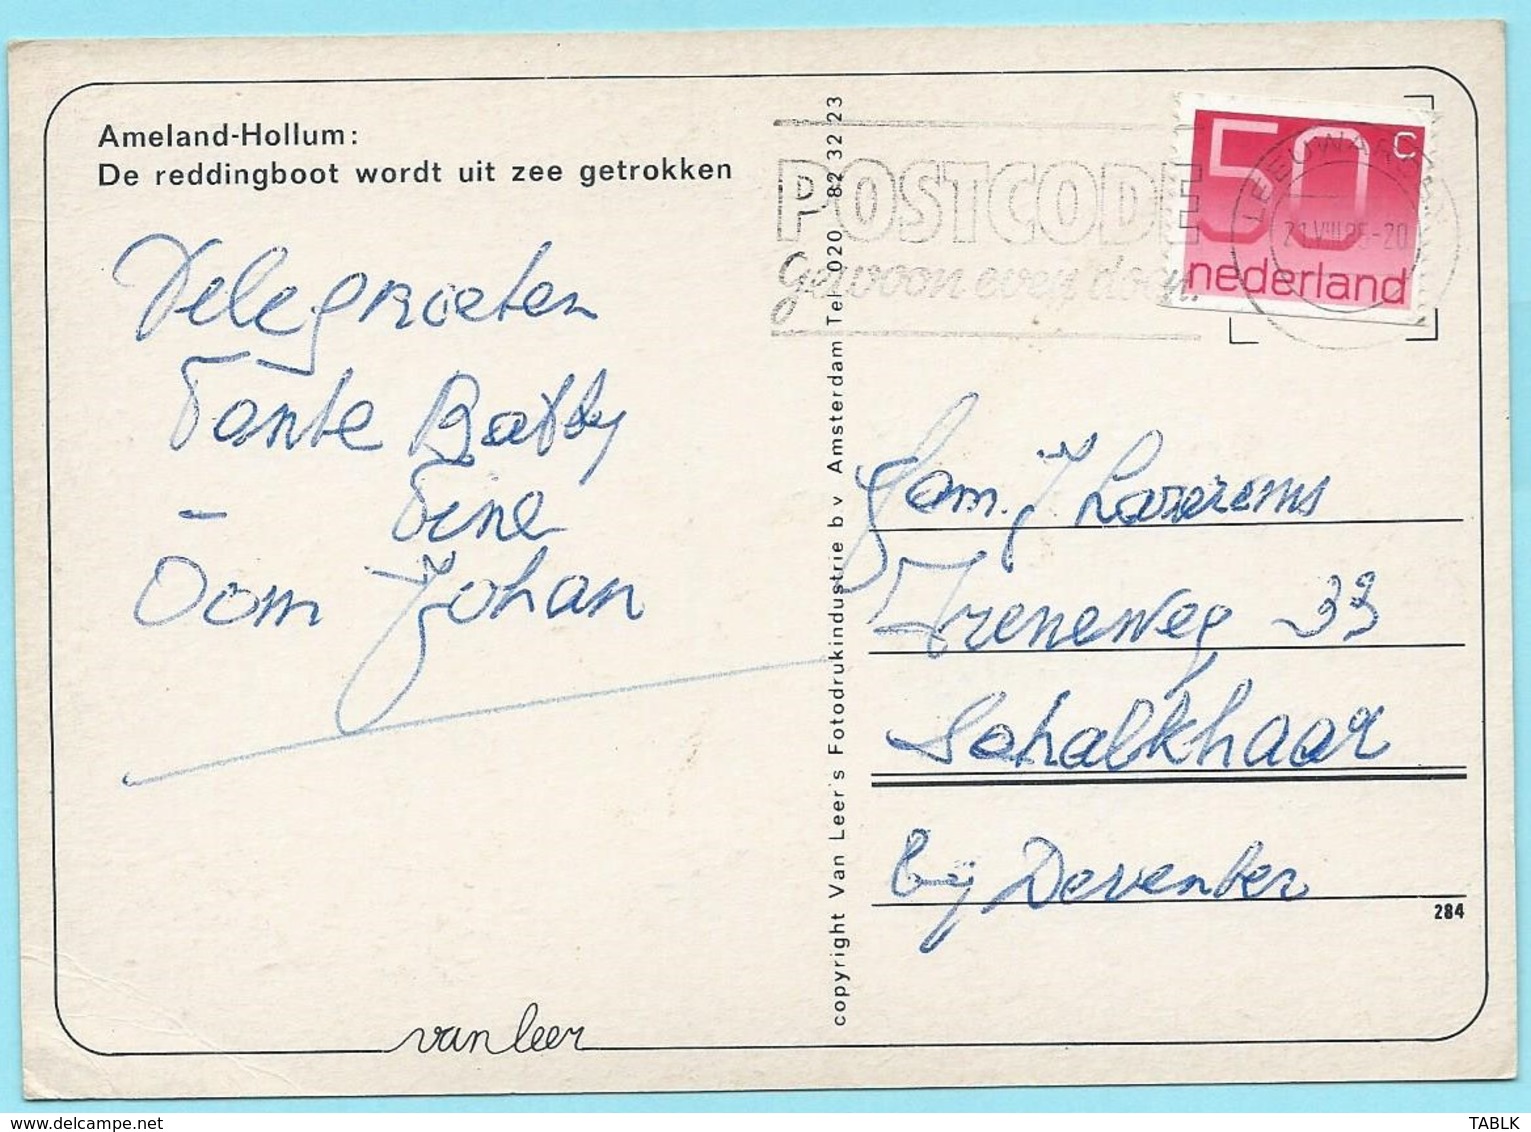 Ameland-Hollum:
De reddingboot wordt uit zee getrokken
Vele groeten
Tante Babby
Tine
Oom Johan
van leer
copyright Van Leer's Fotodrukindustrie b v Amsterdam Tel 020 82 32 23
POSTCODE
Gewoon even doen.
50 c
nederland
LEEUWARDEN
21.VIII.85-20
Fam. J
Ireneweg 33
Schalkhaar
bij Deventer
284
www.delcampe.net
TABLK